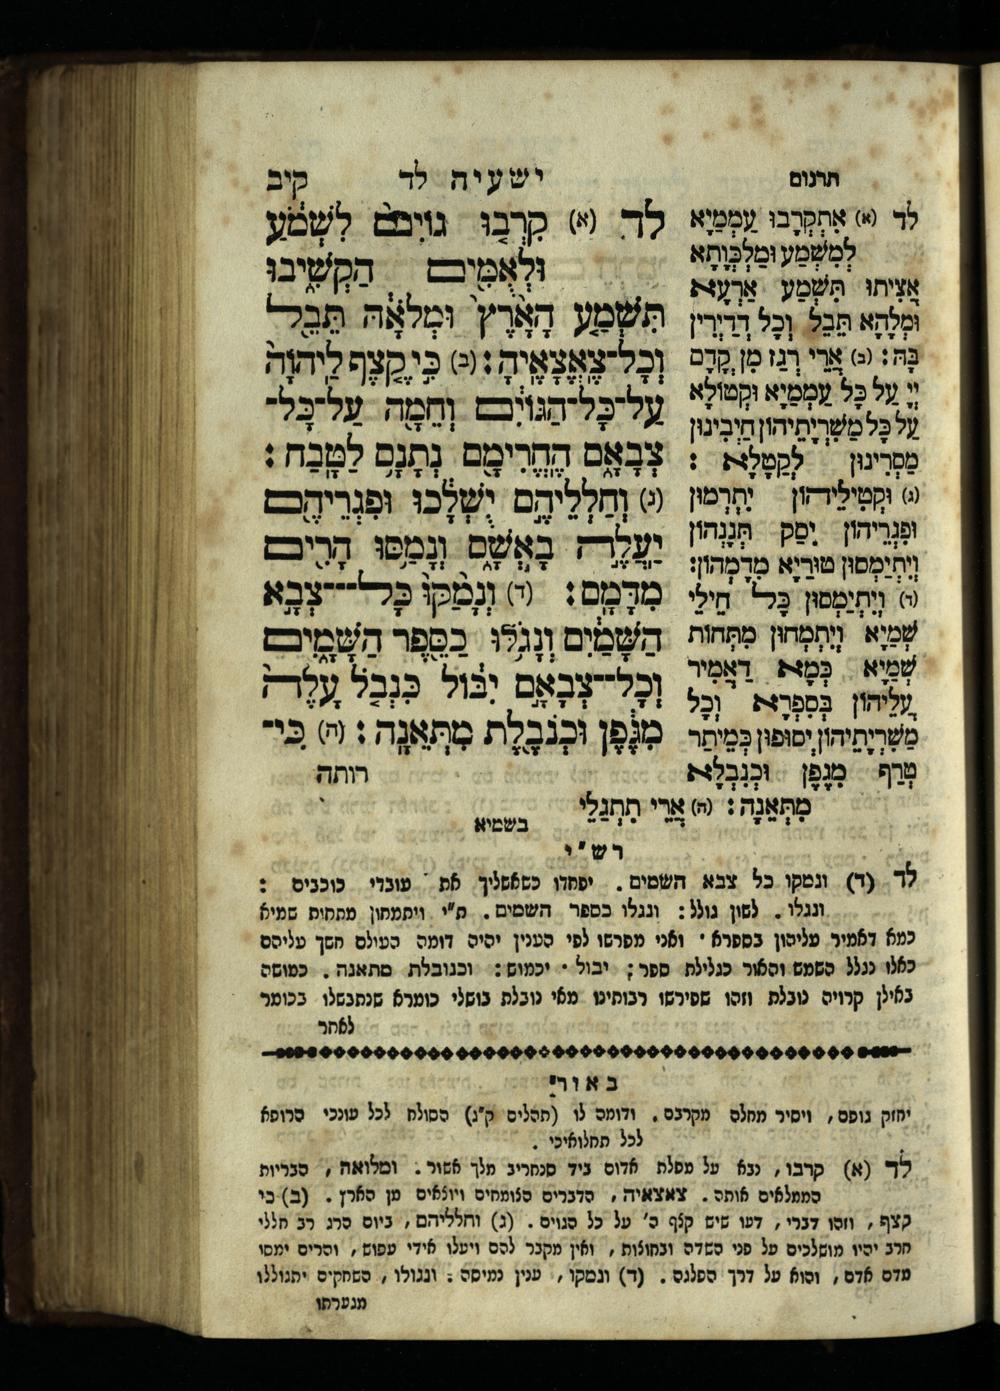 תרגום
ישעיה לד
קיב
לד (א) קִרְב֤וּ גוֹיִם֙ לִשְׁמֹ֔עַ
וּלְאֻמִּ֖ים הַקְשִׁ֑יבוּ
תִּשְׁמַ֤ע הָאָ֙רֶץ֙ וּמְלֹאָ֔הּ תֵּבֵ֖ל
וְכָל־צֶֽאֱצָאֶֽיהָ׃ (ב) כִּ֣י קֶ֤צֶף לַֽיהוָה֙
עַל־כָּל־הַגּוֹיִ֔ם וְחֵמָ֖ה עַל־כָּל־
צְבָאָ֑ם הֶחֱרִימָ֖ם נְתָנָ֥ם לַטָּֽבַח׃
(ג) וְחַלְלֵיהֶ֣ם יֻשְׁלָ֔כוּ וּפִגְרֵיהֶ֖ם
יַעֲלֶ֣ה בָאְשָׁ֑ם וְנָמַ֥סּוּ הָרִ֖ים
מִדָּמָֽם׃ (ד) וְנָמַ֙קּוּ֙ כָּל־צְבָ֣א
הַשָּׁמַ֔יִם וְנָגֹ֥לּוּ כַסֵּ֖פֶר הַשָּׁמָ֑יִם
וְכָל־צְבָאָ֣ם יִבּ֔וֹל כִּנְבֹ֤ל עָלֶה֙
מִגֶּ֔פֶן וּכְנֹבֶ֖לֶת מִתְּאֵנָֽה׃ (ה) כִּי־
רותה
לד (א) אִתְקְרָבוּ עַמְמַיָא
לְמִשְׁמַע וּמַלְכְּוָתָא
אֲצִיתוּ תִּשְׁמַע אַרְעָא
וּמְלָהָא תֵּבֵל וְכָל דְדַיְרִין
בָּהּ׃ (ב) אֲרֵי רְגַז מִן קֳדָם
יְיָ עַל כָּל עַמְמַיָא וּקְטוֹלָא
עַל כָּל מַשִׁרְיָתֵיהוֹן חַיְבִינוּן
מַסְרִינוּן לְקַטָלָא׃
(ג) וּקְטִילֵיהוֹן יִתְרְמוּן
וּפִגְרֵיהוֹן יִסַק תְּנָנְהוֹן
וְיִתְיַמְסוּן טוּרַיָא מִדָמְהוֹן׃
(ד) וְיִתְיַמְסוּן כָּל חֵילֵי
שְׁמַיָא וְיִתְמְחוּן מִתְּחוֹת
שְׁמַיָא כְּמָא דַאֲמִיר
עֲלֵיהוֹן בְּסִפְרָא וְכָל
מַשִׁרְיָתֵיהוֹן יְסוּפוּן כְּמֵיתַר
טְרַף מִגָפָן וּכְנִבְלָא
מִתְּאֵנָה׃ (ה) אֲרֵי תִתְגַלֵי
בשמיא
רש"י
לד (ד) ונמקו כל צבא השמים. יפחדו כשאשליך את עובדי כוכבים:
ונגלו. לשון גולל: ונגלו כספר השמים. ת"י ויתמחון מתחית שמיא
כמא דאמיר עליהון בספרא. ואני מפרשו לפי הענין יהיה דומה העולם חשך עליהם
כאלו נגלל השמש והאור כגלילת ספר: יבול. יכמוש: וכנובלת מתאנה. כמושה
באילן קרויה נובלת וזהו שפירשו רבותינו מאי נובלת בושלי כומרא שנתבשלו בכומר
לאחר
באור
יחזק גופם, ויסיר מחלה מקרבם. ודומה לו (תהלים ק"ג) הסולח לכל עונכי הרופא
לכל תחלואיכי.
לד (א) קרבו, נבא על מפלת אדום ביד סנחריב מלך אשור. ומלואה, הבריות
הממלאים אותה. צאצאיה, הדברים הצומחים ויוצאים מן הארץ. (ב) כי
קצף, וזהו דברי, דעו שיש קצף ה' על כל הגוים. (ג) וחלליהם, ביום הרג רב חללי
חרב יהיו מושלכים על פני השדה ובחוצות, ואין מקבר להם ויעלו אידי עפוש, והרים ימסו
מדם אדם, והוא על דרך הפלגה. (ד) ונמקו, ענין נמיסה: ונגולו, השחקים יתגוללו
מנערתו